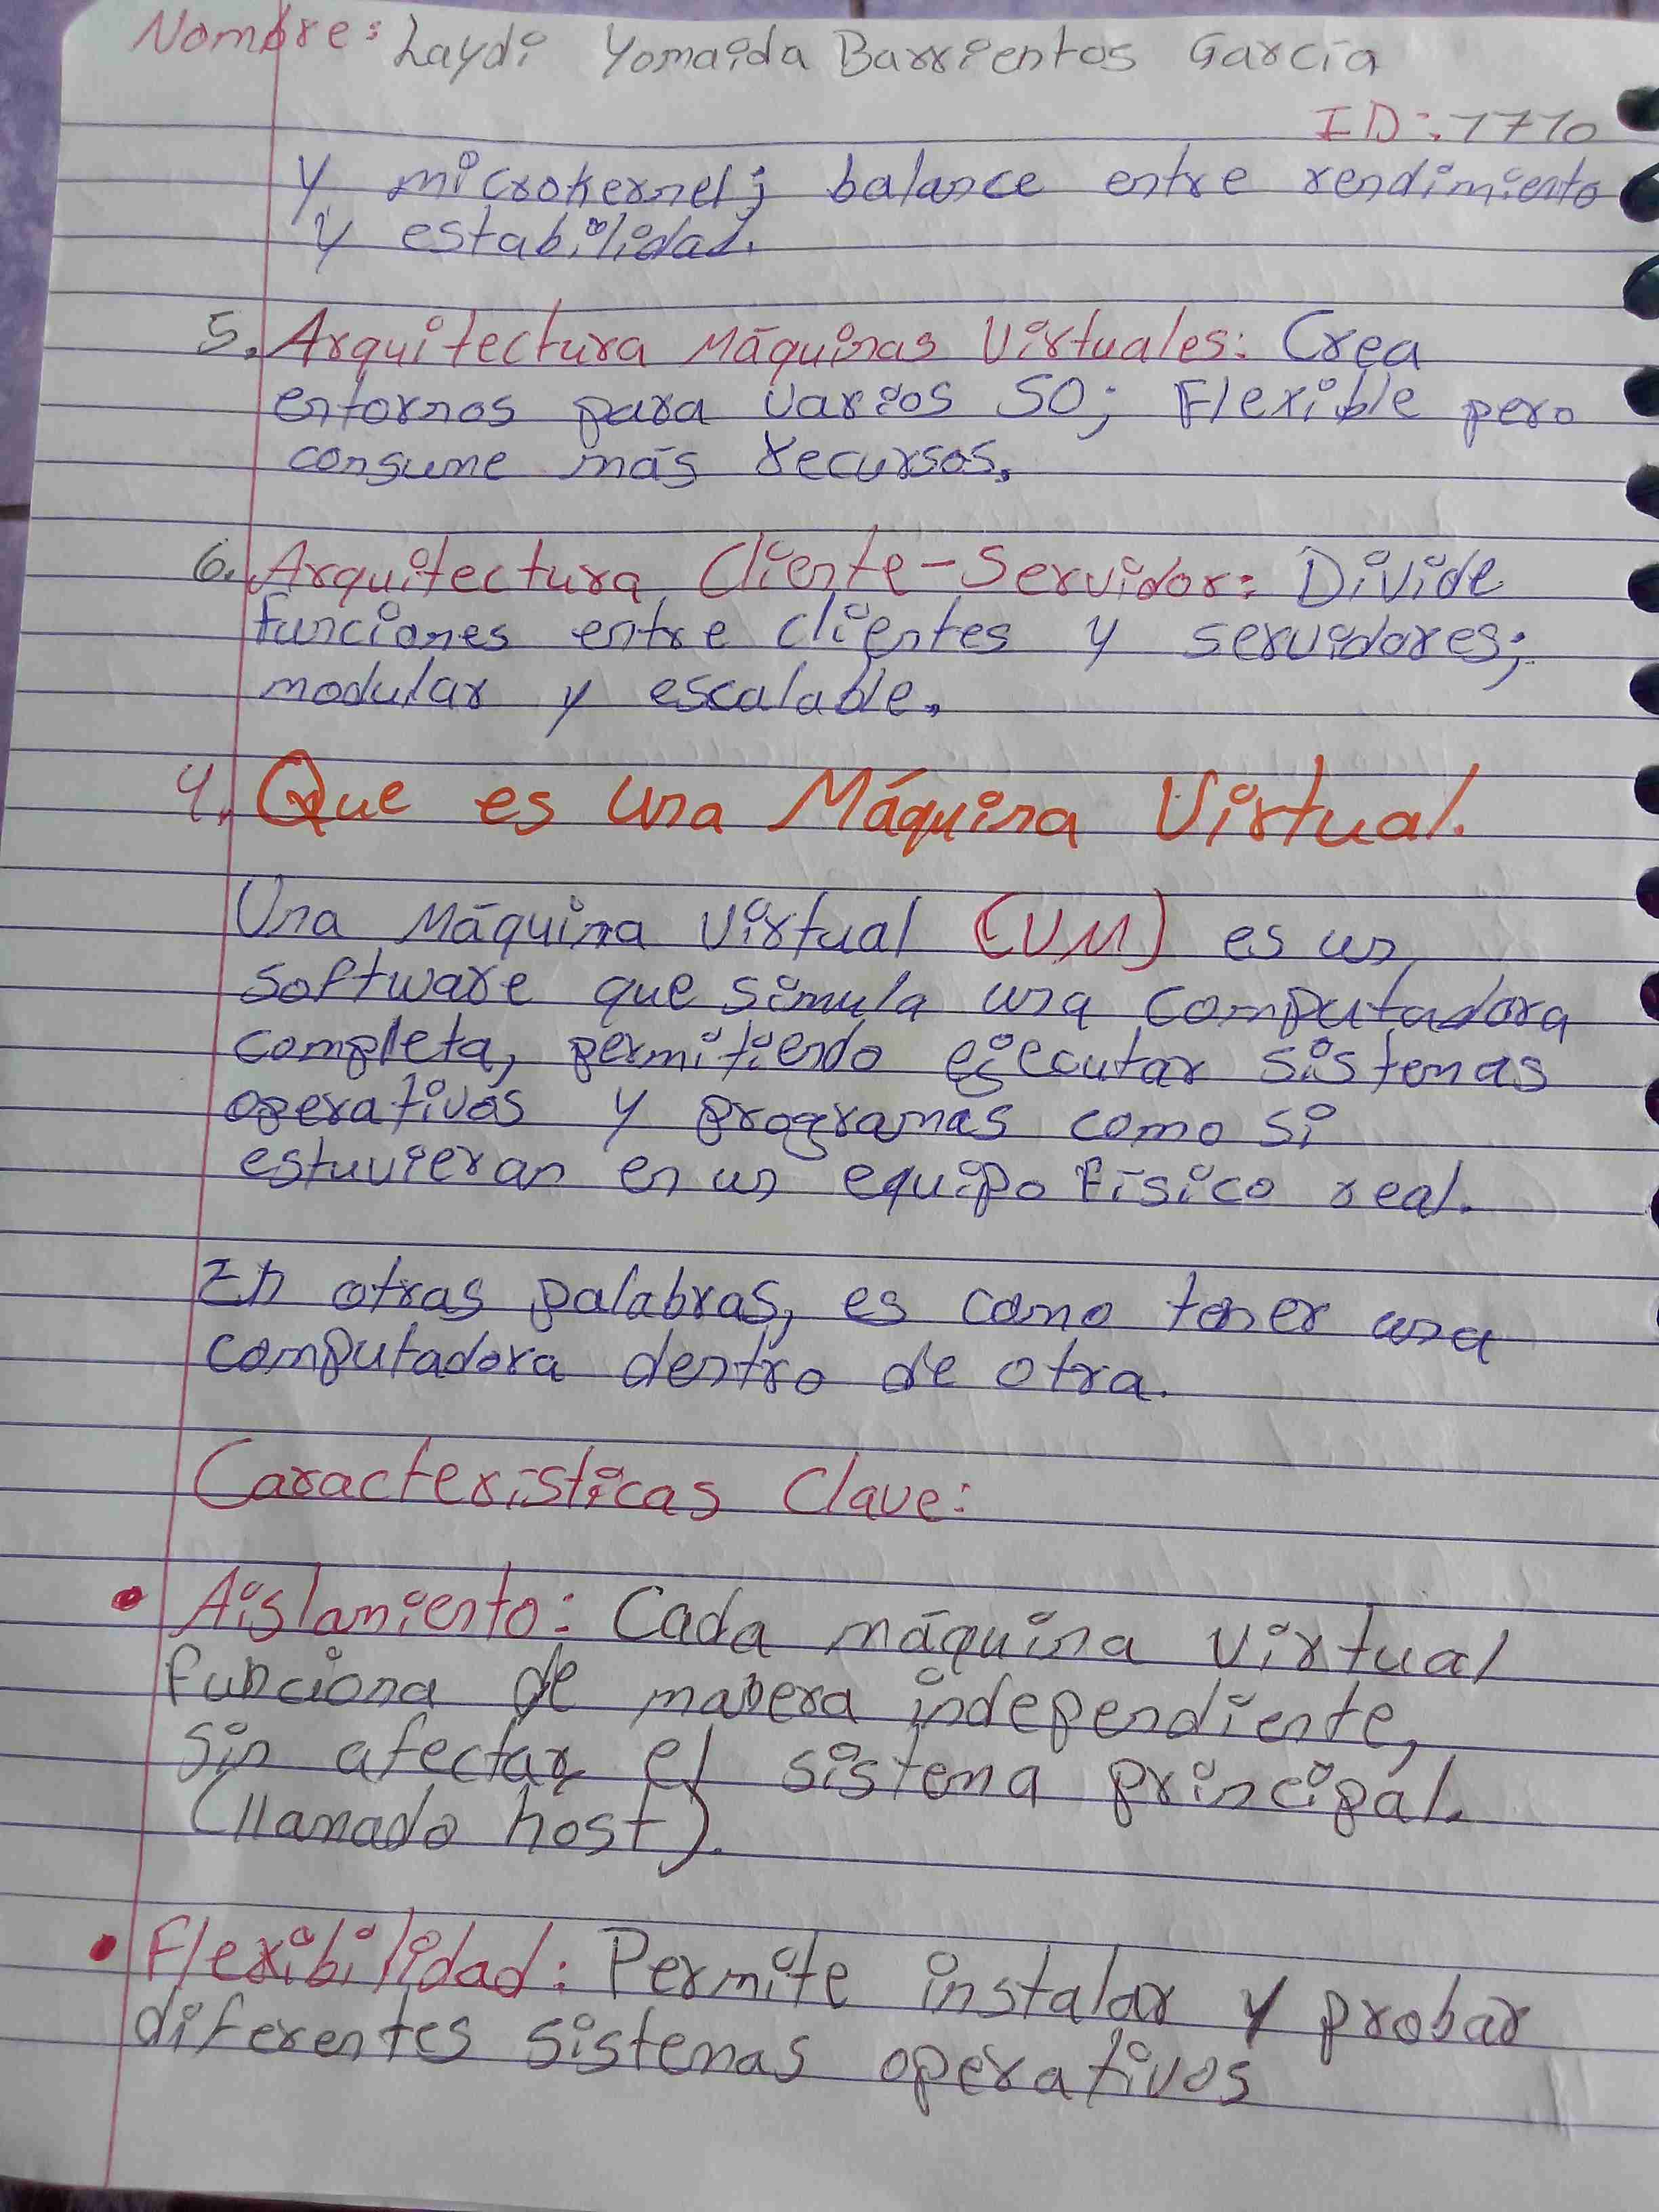 Nombre: Laydi Yomaida Barrientos García
ID: 1710
y microkernel; balance entre rendimiento
y estabilidad.
5. Arquitectura Máquinas Virtuales: Crea
entornos para varios SO; Flexible pero
consume más recursos.
6. Arquitectura Cliente-Servidor: Divide
funciones entre clientes y servidores;
modular y escalable.
4. Que es una Máquina Virtual.
Una Máquina Virtual (VM) es un
software que simula una computadora
completa, permitiendo ejecutar sistemas
operativos y programas como si
estuvieran en un equipo físico real.
En otras palabras, es como tener una
computadora dentro de otra.
Características Clave:
• Aislamiento: Cada máquina virtual
funciona de manera independiente,
sin afectar el sistema principal.
(llamado host).
• Flexibilidad: Permite instalar y probar
diferentes sistemas operativos